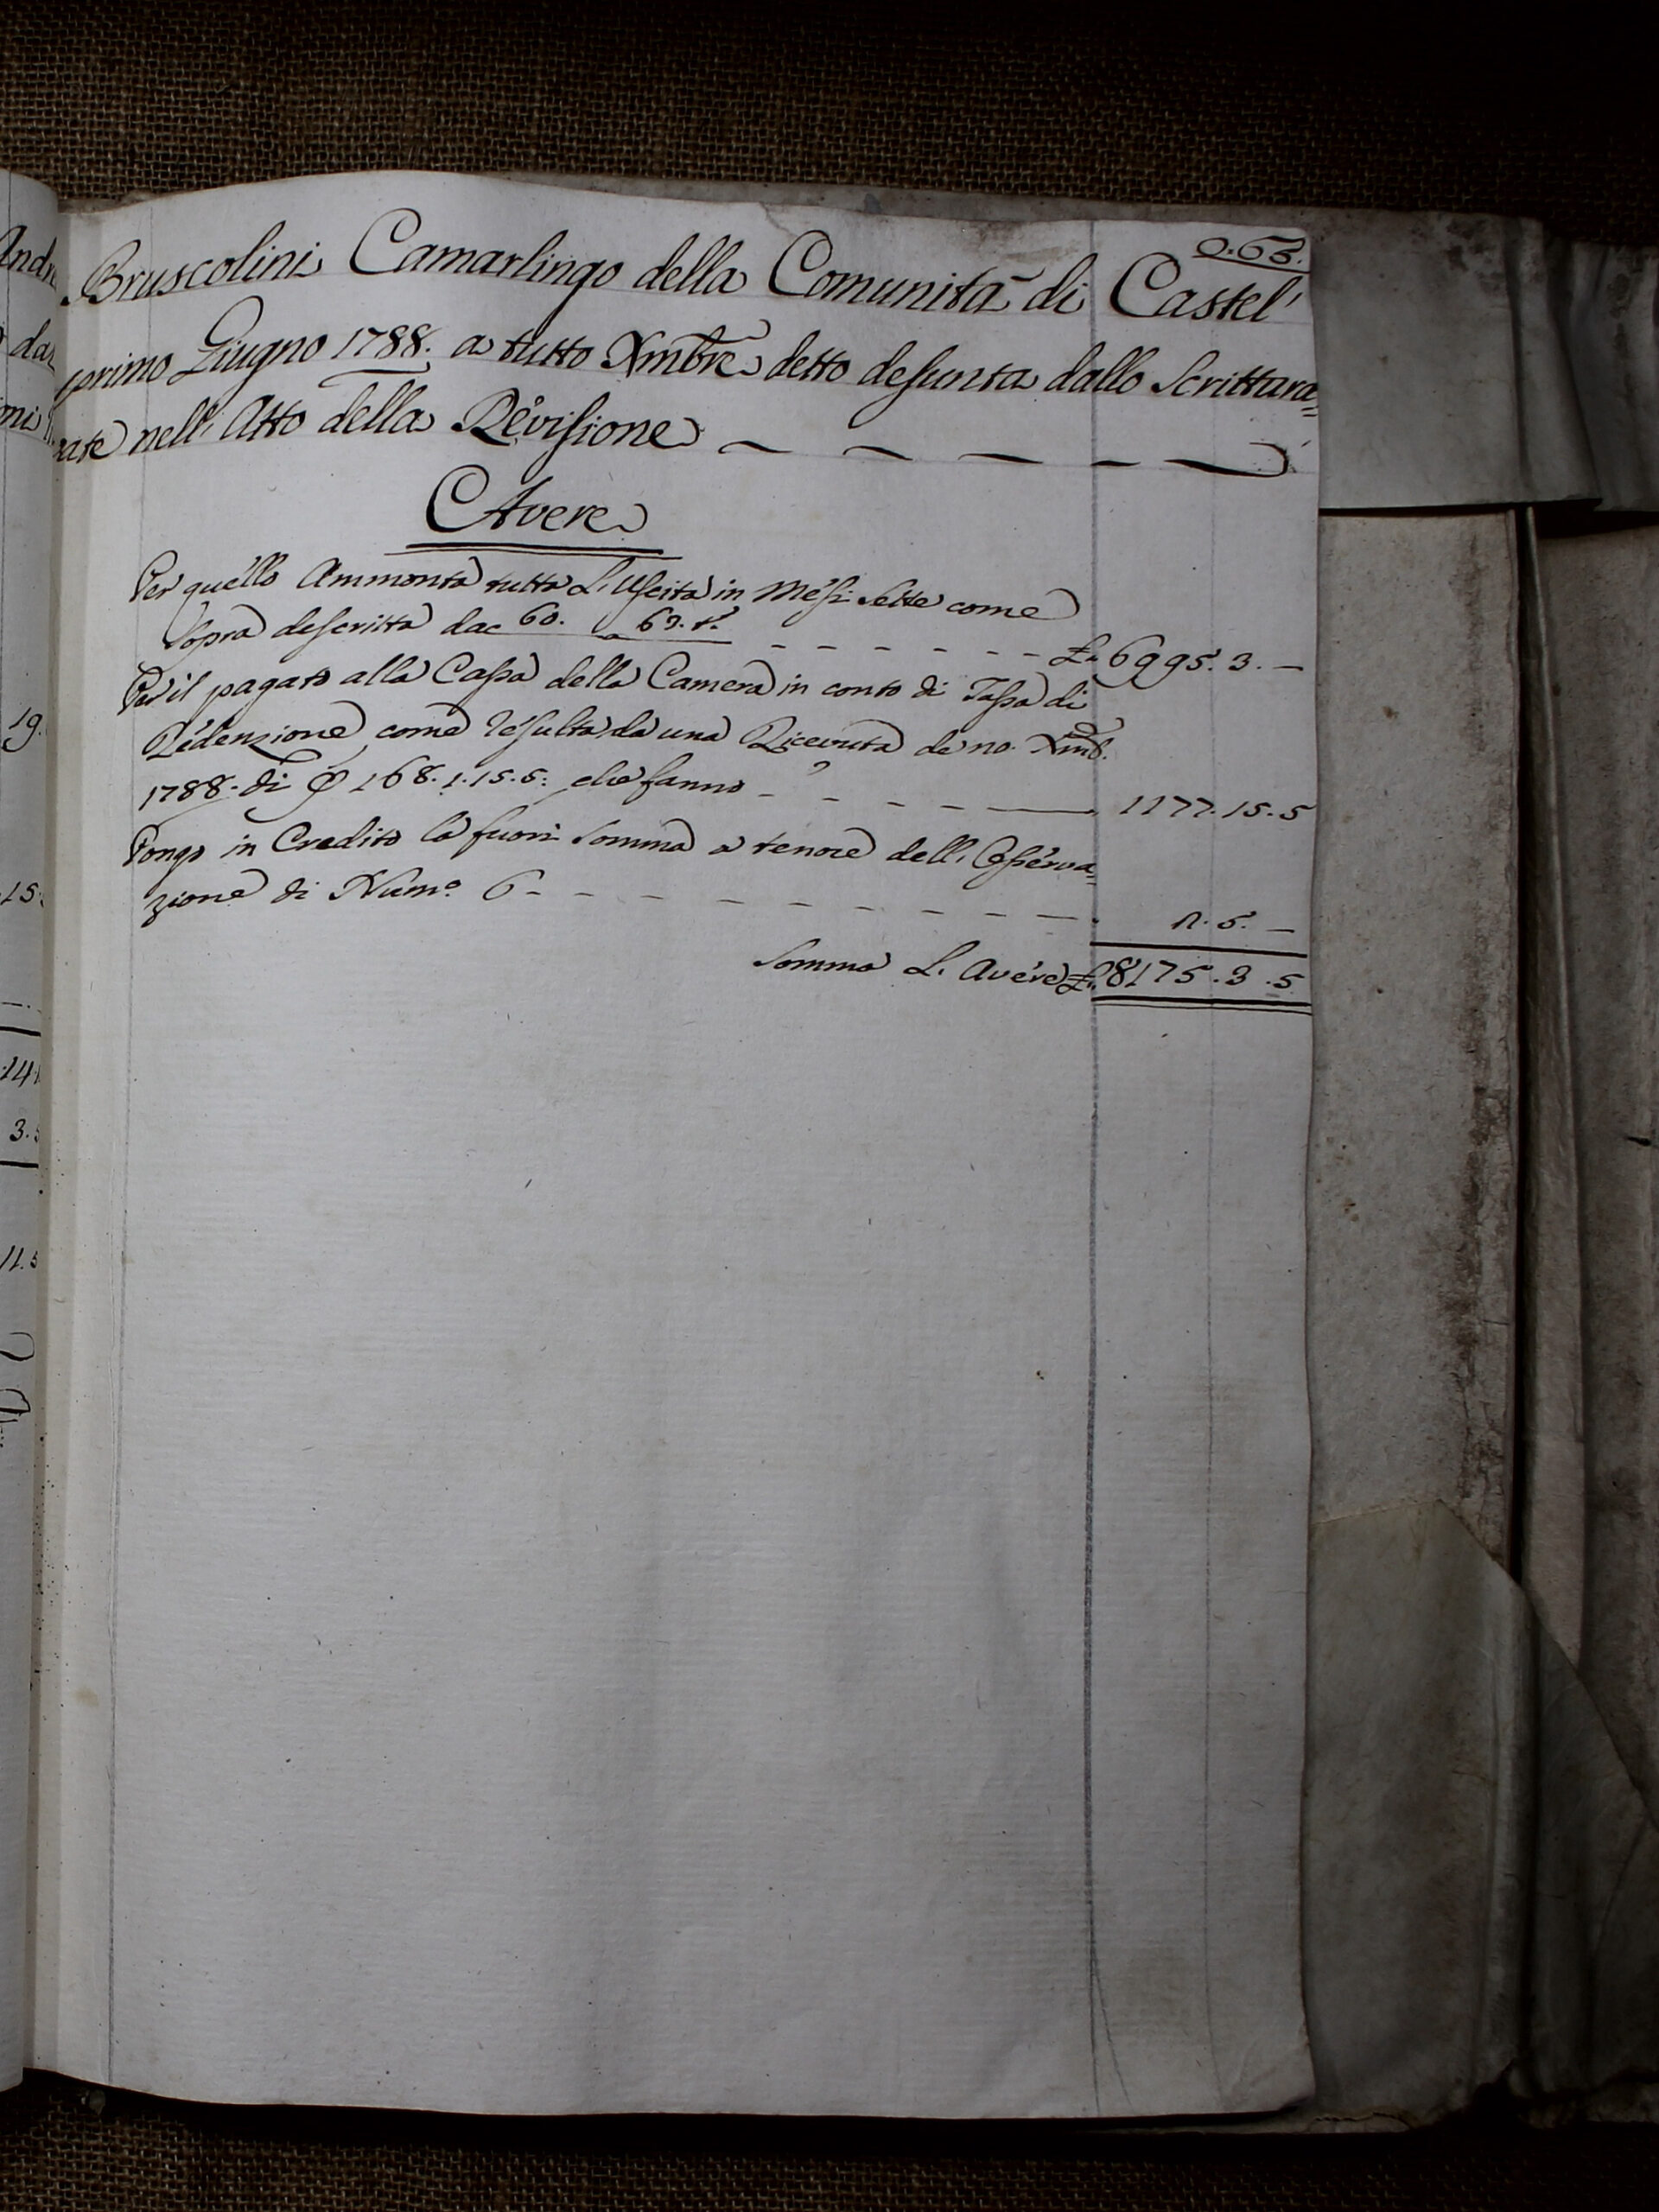 Bruscolini Camarlingo della Comunità di Castel'
primo Giugno 1788. a tutto Xmbre detto desunta dallo Scrittura=
rate nell' Atto della Revisione
Avere
Per quello Ammonta tutta L'Uscita in Mesi Sette come
Sopra descritta da c 60. a 63. t. £ 6995. 3. —
Per il pagato alla Cassa della Camera in conto di Tassa di
Redenzione come resulta da una Ricevuta de 20. Xmb.
1788. di 168. 1. 15. 5. che fanno 1177. 15. 5
Pongo in Credito la fuori Somma a tenore dell' Osserva=
zione di Num.º 6 2. 5. —
Somma L' Avere £ 8175. 3. 5